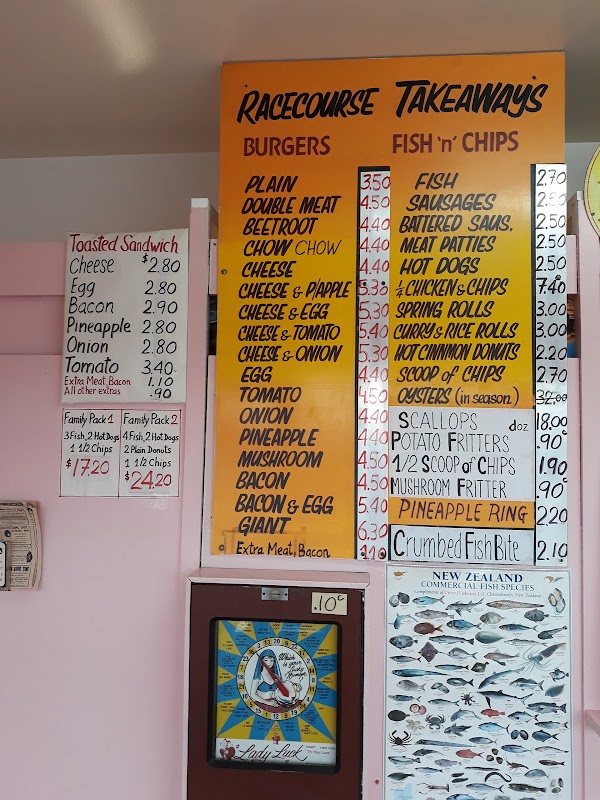 RACECOURSE TAKEAWAYS
BURGERS
PLAIN 3.50
DOUBLE MEAT 4.50
BEETROOT 4.40
CHOW CHOW 4.40
CHEESE 4.40
CHEESE & P/APPLE 5.30
CHEESE & EGG 5.30
CHEESE & TOMATO 5.40
CHEESE & ONION 5.30
EGG 4.40
TOMATO 4.50
ONION 4.40
PINEAPPLE 4.40
MUSHROOM 4.50
BACON 4.50
BACON & EGG 5.40
GIANT 6.30
Extra Meat, Bacon 1.10
FISH 'n' CHIPS
FISH 2.70
SAUSAGES 2.50
BATTERED SAUS. 2.50
MEAT PATTIES 2.50
HOT DOGS 2.50
1/4 CHICKEN & CHIPS 7.40
SPRING ROLLS 3.00
CURRY & RICE ROLLS 3.00
HOT CINNMON DONUTS 2.20
SCOOP of CHIPS 2.70
OYSTERS (in season) 32.00
SCALLOPS doz 18.00
POTATO FRITTERS .90c
1/2 SCOOP of CHIPS 1.90
MUSHROOM FRITTER .90c
PINEAPPLE RING 2.20
Crumbed Fish Bite 2.10
Toasted Sandwich
Cheese $2.80
Egg 2.80
Bacon 2.90
Pineapple 2.80
Onion 2.80
Tomato 3.40
Extra Meat, Bacon 1.10
All other extras .90
Family Pack 1
3 Fish, 2 Hot Dogs
1 1/2 Chips
$17.20
Family Pack 2
4 Fish, 2 Hot Dogs
2 Plain Donuts
1 1/2 Chips
$24.20
.10c
Which is your Lucky Number
Lady Luck
NEW ZEALAND
COMMERCIAL FISH SPECIES